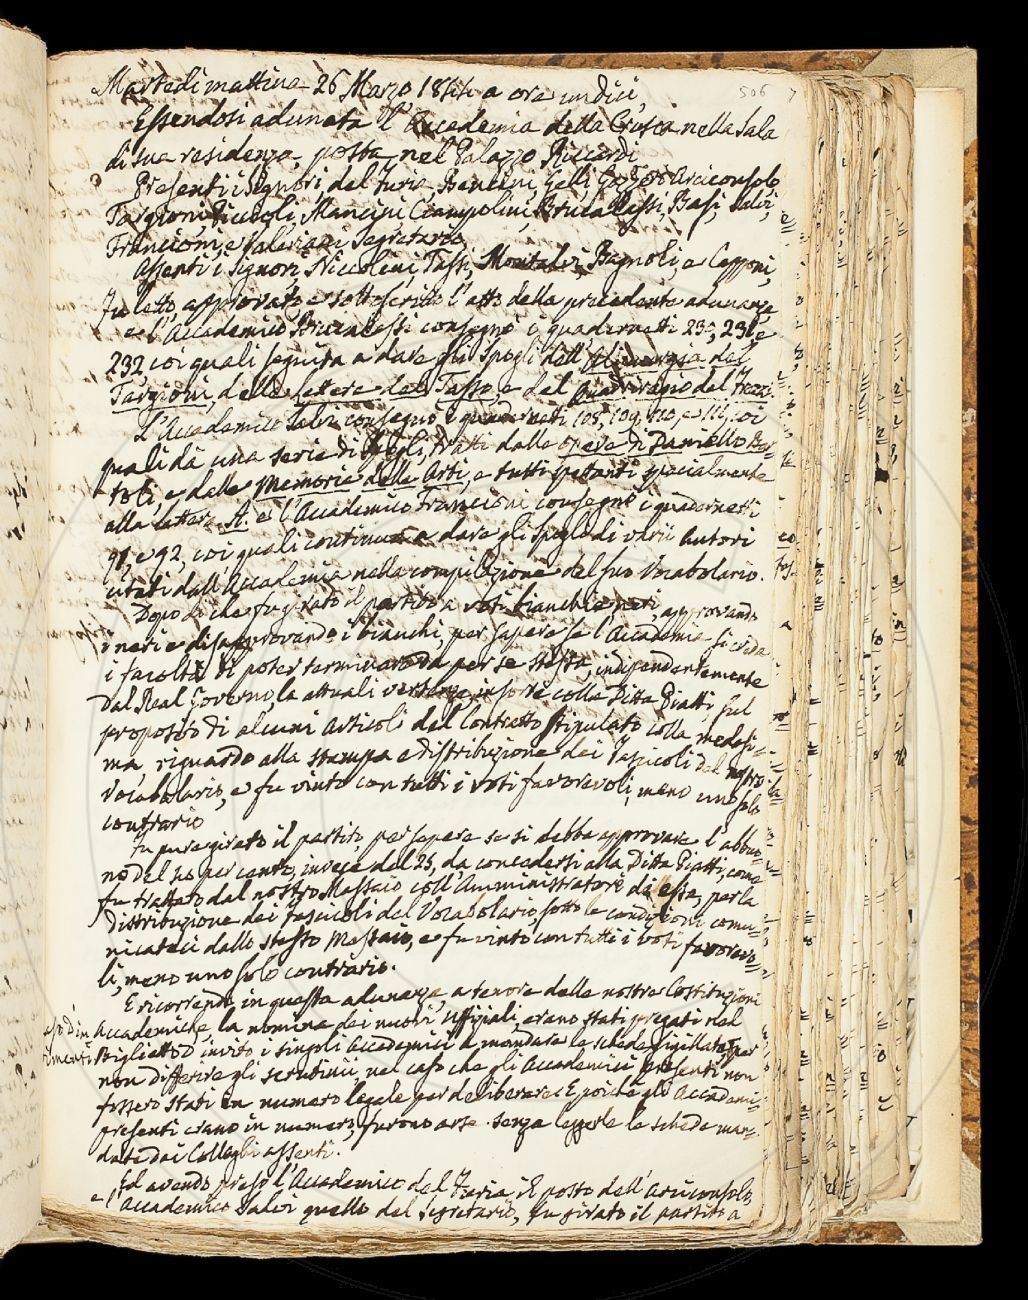 506
Martedì mattina 26 Marzo 1844 a ore undici,
Essendosi adunata l'Accademia della Crusca nella Sala
di sua residenza, posta nel Palazzo Riccardi
Presenti i Signori, del Furia, Bencini, Gelli, Arciconsolo
Targioni, Piccioli, Mancini, Ciampolini, Brucalassi, Basi, Salvi,
Francioni, e Valeriani Segretario,
Assenti i Signori, Niccolini, Tassi, Montalvi, Bagnoli, e Capponi,
Fu letto, approvato e sottoscritto l'atto della precedente adunanza
e l'Accademico Brucalassi consegnò i quaderneti 230, 231 e
232 coi quali seguita a dare gli Spogli dell' del
Targioni, delle Lettere del Tasso, e del Quadriregio del Frezzi.
L'Accademico Salvi consegnò i quaderneti 108, 109, 110, e 111, coi
quali dà una serie di Spogli, tratti dalle opere di Daniello Bar=
toli, e dalle Memorie delle Arti, e tutti spettanti specialmente
alla lettera A. e l'Accademico Francioni consegnò i quaderneti
91, e 92, coi quali continua a dare gli spogli di varii Autori
citati dall'Accademia nella compilazione del suo Vocabolario.
Dopo di che fu girato il partito a voti bianchi e neri, approvando
i neri e disapprovando i bianchi, per sapere se l'Accademia si creda
i facoltà di poter terminare da per se stessa, independantemente
dal Real Governo, la attuali vertenze, insorte colla Ditta Piatti, sul
proposito di alcuni Articoli del Contratto stipulato colla medesi=
ma, riguardo alla stampa e distribuzione dei Fascicoli del nostro
Vocabolario, e fu vinto con tutti i voti favorevoli, meno uno solo
contrario
Fu pure girato il partito, per sapere se si debba approvare l'abbuo=
no del per cento, invece del 25, da concedersi alla Ditta Piatti, come
fu trattato dal nostro Massaio coll'Amministratore di essa, per la
distribuzione dei Fascicoli del Vocabolario sotto le condizioni comu=
nicateci dallo stesso Massaio, e fu vinto con tutti i voti favorevo=
li, meno uno solo contrario.
E ricorrendo in questa adunanza, a tenore delle nostre Costituzioni
Accademiche, la nomina dei nuovi Uffiziali, erano stati pregati nel
Biglietto d'invito i singoli Accademici a mandare le schede sigillate, per
non differire gli scrutinii, nel caso che gli Accademici presenti non
fossero stati in numero legale per deliberare. E poichè gli Accademici
presenti erano in numero, furono arse senza leggerle le schede man=
date dai Colleghi assenti.
Ed avendo preso l'Accademico del Furia il posto dell'Arciconsolo,
e l'Accademico Salvi quello del Segretario, fu girato il partito a